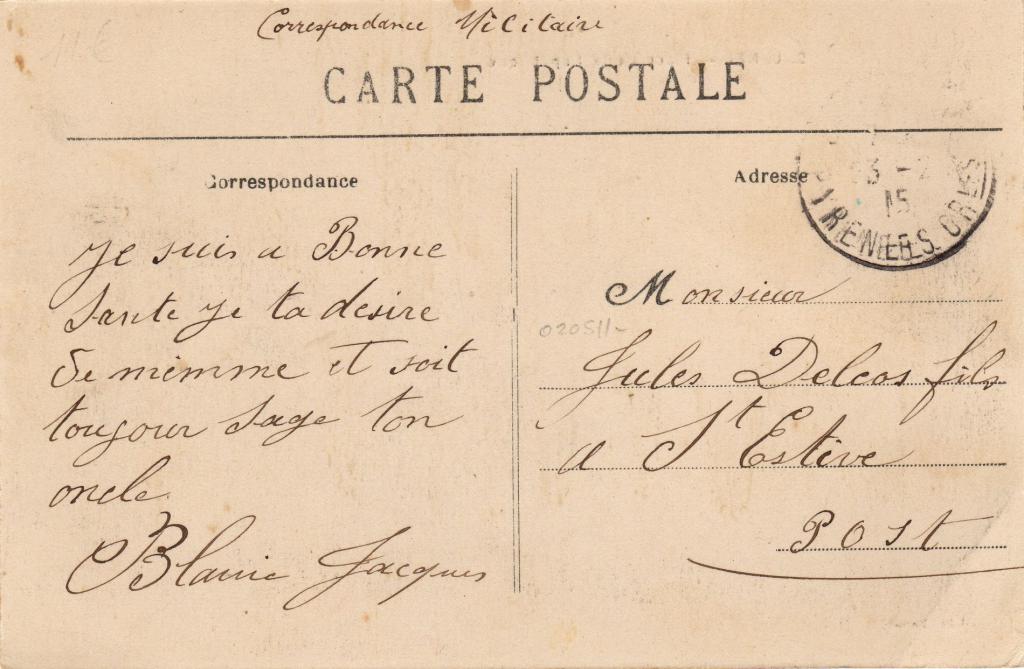 Correspondance Militaire
CARTE POSTALE
Correspondance
Adresse
3 - 2
15
PYRENEES ORLES
Je suis a Bonne
Sante Je ta desire
de memme et soit
toujour sage ton
oncle
Blanic Jacques
Monsieur
020511-
Jules Delcos fils
a St Estève
P. Ost